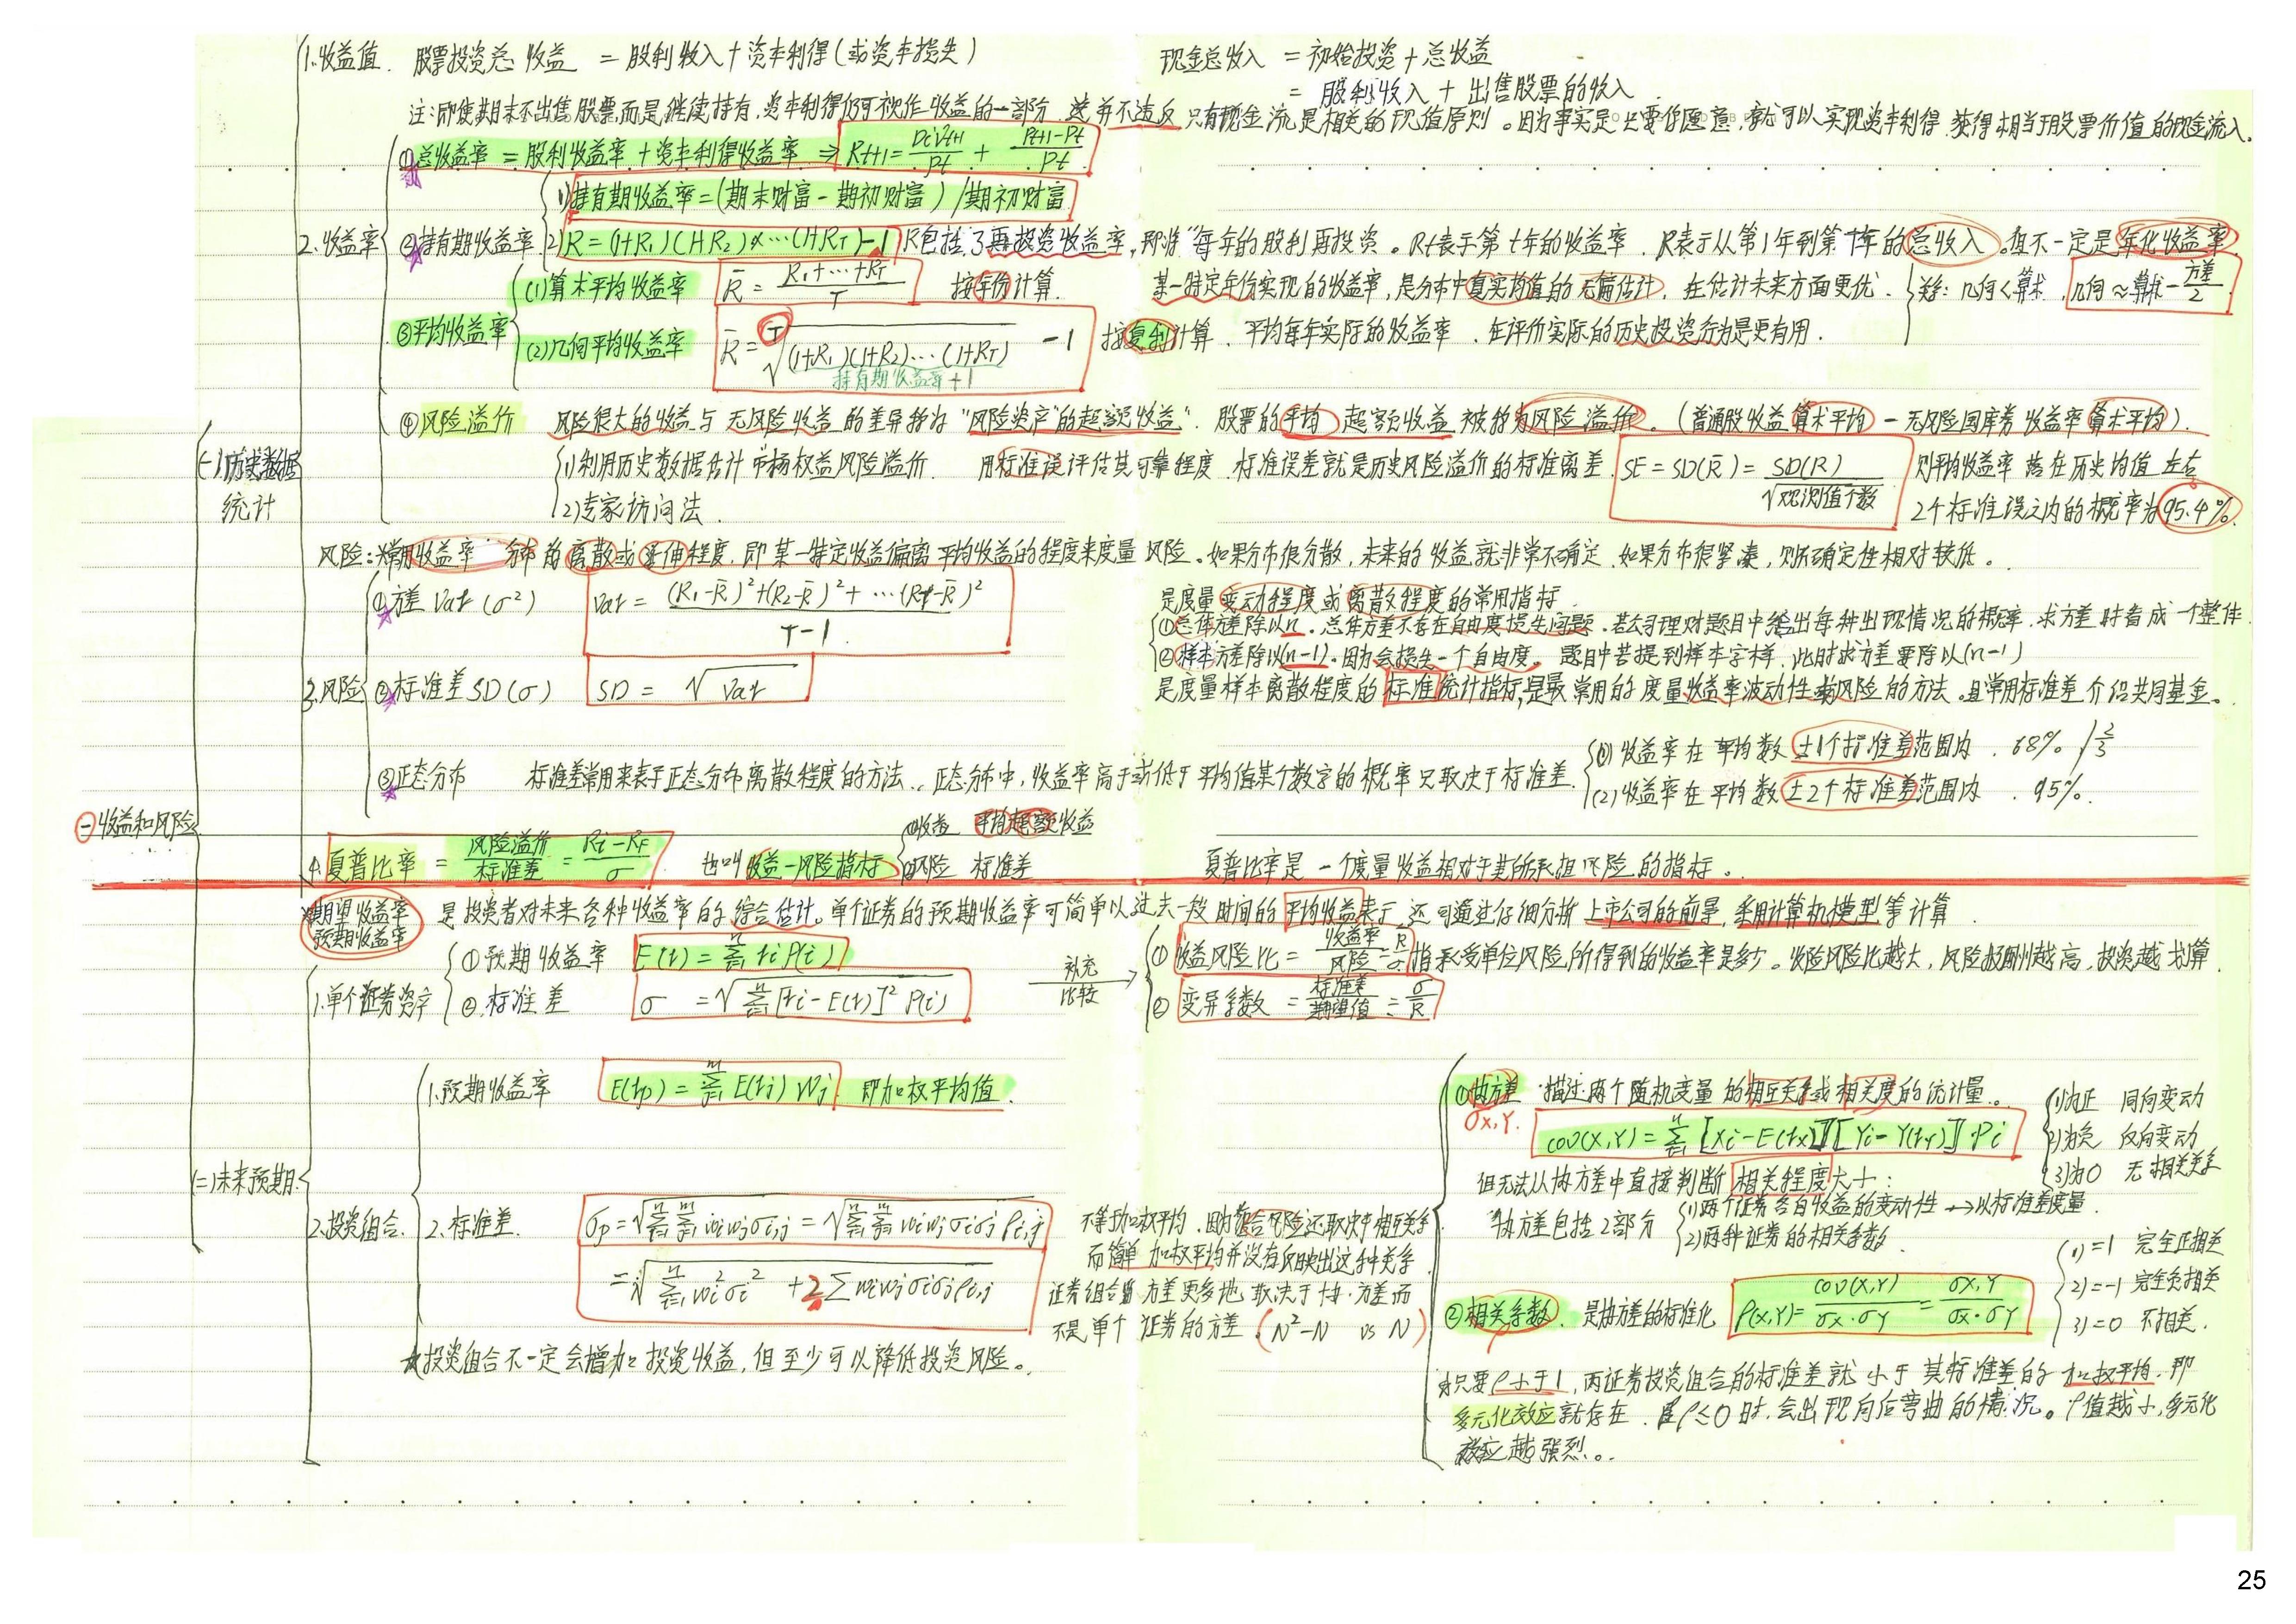 1.收益值. 股票投资总收益 = 股利收入+资本利得(或资本损失)
现金总收入 = 初始投资+总收益
= 股利收入 + 出售股票的收入
注:即使期末不出售股票而是继续持有,资本利得仍可视作收益的一部分,这并不违反只有现金流是相关的现值原则。因为事实是只要你愿意,就可以实现资本利得,获得相当于股票价值的现金流入.
2.收益率
①总收益率 = 股利收益率+资本利得收益率 ⇒ Rt+1 = Divt+1/Pt + (Pt+1-Pt)/Pt
②持有期收益率
1)持有期收益率=(期末财富-期初财富)/期初财富
2) R=(1+R1)(1+R2)×…(1+RT)-1 R包括了再投资收益率,即准"每年的股利再投资。Rt表示第t年的收益率.R表示从第1年到第T年的总收入。但不一定是年化收益率.
③平均收益率
(1)算术平均收益率 R̄ = (R1+…+RT)/T 按年份计算. 某一特定年份实现的收益率,是分布中真实均值的无偏估计,在估计未来方面更优.
(2)几何平均收益率 R̄ = T√(1+R1)(1+R2)…(1+RT) -1 按复利计算. 平均每年实际的收益率.在评价实际的历史投资行为是更有用.
持有期收益率+1
关系: 几何<算术, 几何≈算术-方差/2
④风险溢价 风险很大的收益与无风险收益的差异称为"风险资产"的超额收益". 股票的平均超额收益被称为风险溢价。(普通股收益算术平均-无风险国库券收益率算术平均).
(1)利用历史数据估计市场权益风险溢价. 用标准误评估其可靠程度.标准误差就是历史风险溢价的标准离差. SE=SD(R̄)= SD(R)/√观测值个数 则平均收益率落在历史均值左右
2个标准误之内的概率为95.4%.
(2)专家访问法.
(一)历史数据
统计
风险:常用收益率分布的离散或延伸程度,即某一特定收益偏离平均收益的程度来度量风险。如果分布很分散,未来的收益就非常不确定,如果分布很紧凑,则不确定性相对较低。
3.风险
①方差 Var(σ²) Var = [(R1-R̄)²+(R2-R̄)²+…(RT-R̄)²]/(T-1)
是度量变动程度或离散程度的常用指标.
①总体方差除以n.总体方差不存在自由度损失问题.若公司理财题目中给出每种出现情况的概率,求方差时看成一个整体.
②样本方差除以(n-1).因为会损失一个自由度。题目中若提到样本字样,此时求方差要除以(n-1)
②标准差SD(σ) SD = √Var 是度量样本离散程度的标准统计指标,是最常用的度量收益率波动性或风险的方法。且常用标准差介绍共同基金。
③正态分布 标准差常用来表示正态分布离散程度的方法.正态分布中,收益率高于或低于平均值某个数字的概率只取决于标准差.
(1)收益率在平均数±1个标准差范围内. 68% / 2/3
(2)收益率在平均数±2个标准差范围内. 95%.
一 收益和风险
4.夏普比率 = 风险溢价/标准差 = (Ri-RF)/σ 也叫收益-风险指标
①收益 平均超额收益
②风险 标准差
夏普比率是一个度量收益相对于其所承担风险的指标。
期望收益率
预期收益率
是投资者对未来各种收益率的综合估计。单个证券的预期收益率可简单以过去一段时间的平均收益表示,还可通过仔细分析上市公司的前景,采用计算机模型等计算.
(二)未来预期
1.单个证券资产
①预期收益率 E(r) = Σ(i=1,n) ri P(i)
②标准差 σ = √Σ(i=1,n)[ri-E(r)]² P(i)
补充
比较
①收益风险比 = 收益率/风险 = R/σ 指承受单位风险所得到的收益率是多少。收益风险比越大,风险报酬越高,投资越划算.
②变异系数 = 标准差/期望值 = σ/R
2.投资组合.
1.预期收益率 E(rp) = Σ(j=1,m) E(rj) Wj 即加权平均值.
2.标准差. σp = √ΣΣ wiwjσi,j = √ΣΣ wiwjσiσjρi,j
= √Σ wi²σi² + 2Σ wiwjσiσjρi,j
不等于加权平均.因为组合风险还取决于相互关系.
而简单加权平均并没有反映出这种关系
证券组合的方差更多地取决于协方差而
不是单个证券的方差.(N²-N vs N)
投资组合不一定会增加投资收益,但至少可以降低投资风险。
①协方差 描述两个随机变量的相互关系或相关度的统计量.
σX,Y. cov(X,Y) = Σ(i=1,n)[Xi-E(rx)][Yi-Y(ry)]·Pi
(1)为正 同向变动
(2)为负 反向变动
(3)为0 无相关关系
但无法从协方差中直接判断相关程度大小:
协方差包括2部分
(1)两个证券各自收益的变动性→以标准差度量.
(2)两种证券的相关系数.
②相关系数. 是协方差的标准化 ρ(X,Y) = cov(X,Y)/σX·σY = σX,Y/σX·σY
(1)=1 完全正相关
2)=-1 完全负相关
3)=0 不相关.
只要ρ小于1,两证券投资组合的标准差就小于其标准差的加权平均,即
多元化效应就存在. 当ρ≤0时,会出现向后弯曲的情况。ρ值越小,多元化
效应越强烈。
25